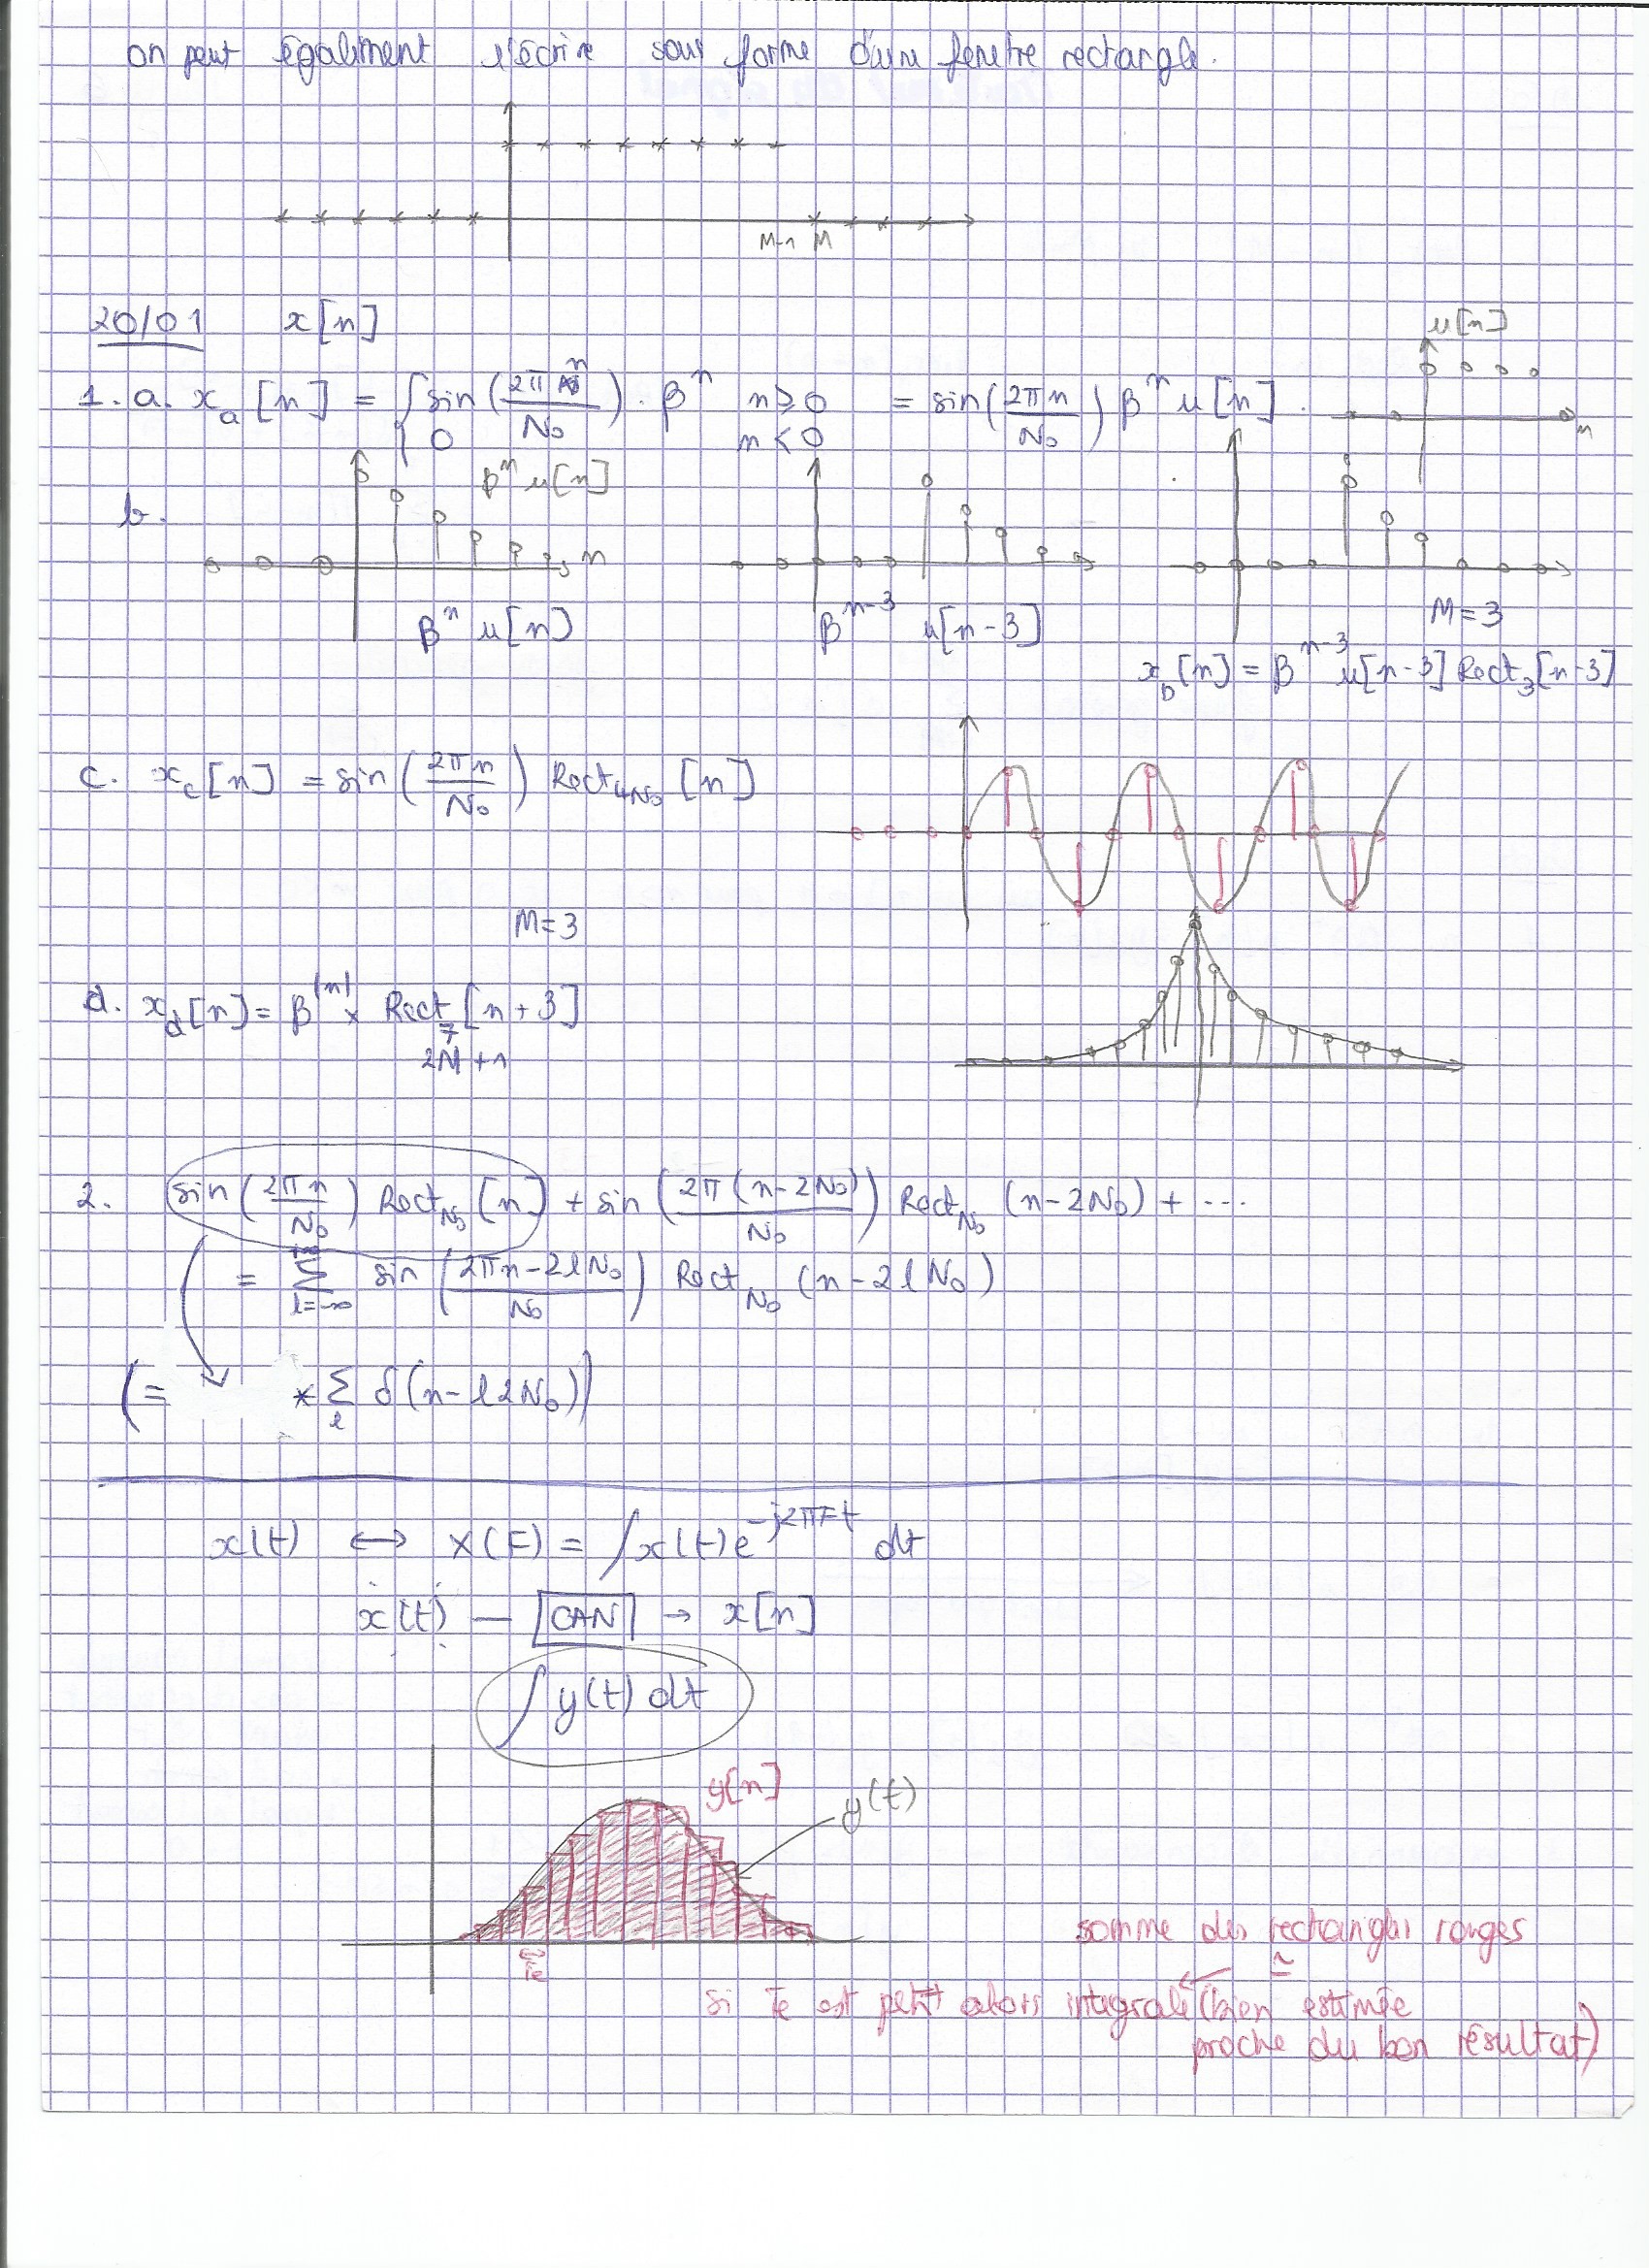 on peut également l'écrire sous forme d'une fenetre rectangle.
M-1 M
20/01 x[n]
u[n]
1. a. x_a[n] = { sin(2πn/N₀) · β^n n ≥ 0 = sin(2πn/N₀) β^n u[n].
0 n < 0
n
b. β^n u[n]
n
β^n u[n] β^{n-3} u[n-3] M=3
x_b[n] = β^{n-3} u[n-3] Rect₃[n-3]
c. x_c[n] = sin(2πn/N₀) Rect_{4N₀}[n]
M=3
d. x_d[n] = β^{|n|} × Rect₇[n+3]
2M+1
2. sin(2πn/N₀) Rect_{N₀}[n] + sin(2π(n-2N₀)/N₀) Rect_{N₀}(n-2N₀) + ...
= Σ_{l=-∞}^{+∞} sin(2πn-2lN₀/N₀) Rect_{N₀}(n-2lN₀)
(= * Σ_l δ(n-l2N₀))
x(t) ↔ X(F) = ∫x(t)e^{-j2πFt} dt
x(t) — CAN → x[n]
∫y(t) dt
y[n]
y(t)
Te
somme des rectangles rouges
≃
si Te est petit alors integrale (bien estimée
proche du bon résultat)